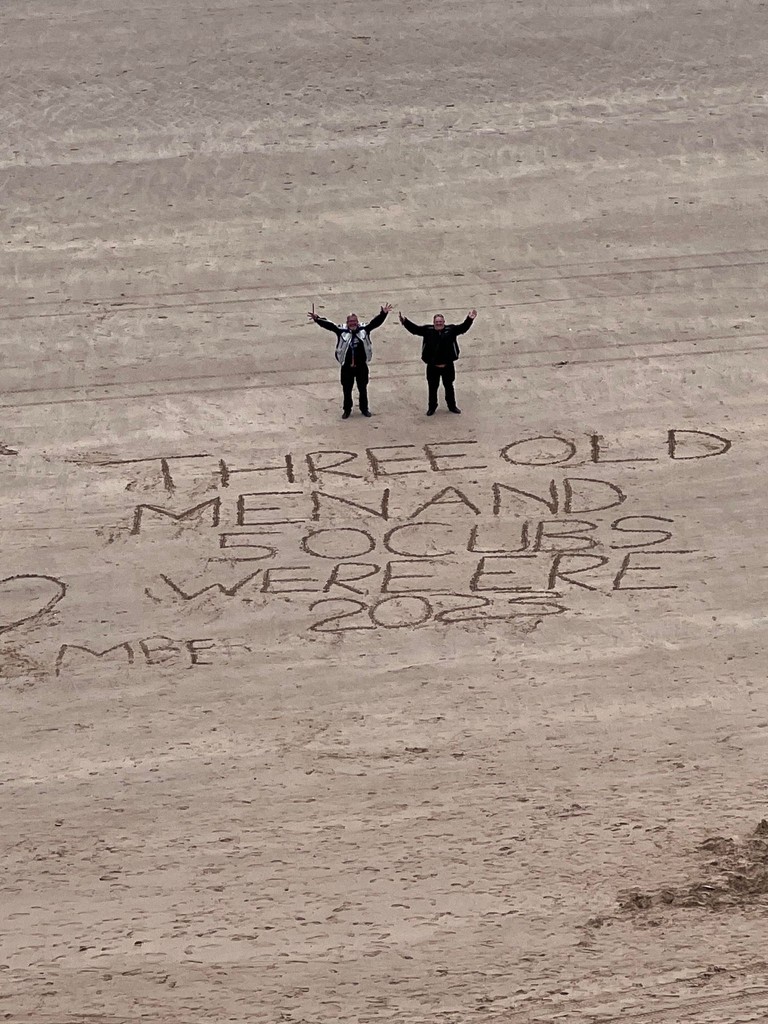 THREE OLD
MEN AND
50 CUBS
WERE ERE
2025
MBER